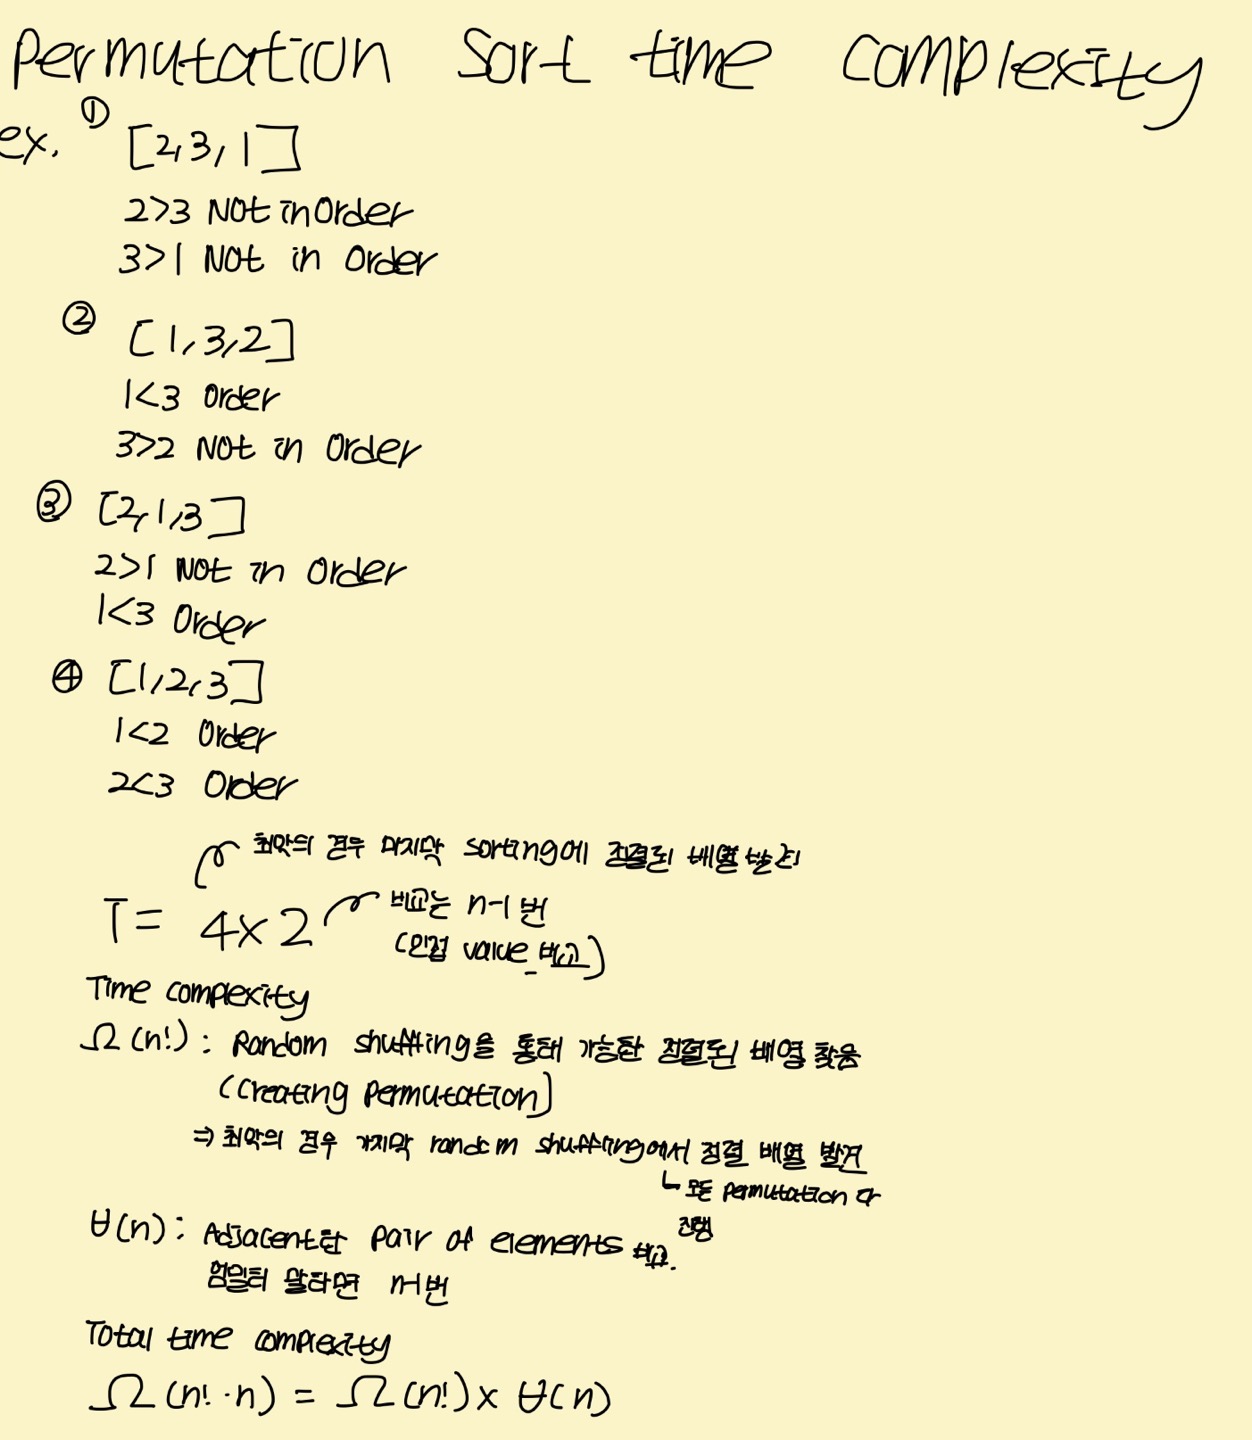 Permutation Sort time complexity
ex. ① [2,3,1]
2>3 Not in Order
3>1 Not in Order
② [1,3,2]
1<3 Order
3>2 Not in Order
③ [2,1,3]
2>1 Not in Order
1<3 Order
④ [1,2,3]
1<2 Order
2<3 Order
최악의 경우 마지막 sorting에 정렬된 배열 발견
T = 4x2
비교는 n-1번
(인접 value 비교)
Time complexity
Ω(n!) : Random shuffling을 통해 가능한 정렬된 배열 찾음
(Creating Permutation)
⇒ 최악의 경우 마지막 random shuffling에서 정렬 배열 발견
모든 permutation 다
진행
θ(n) : Adjacent한 pair of elements 비교.
엄밀히 말하면 n-1번
Total time complexity
Ω(n!·n) = Ω(n!) x θ(n)